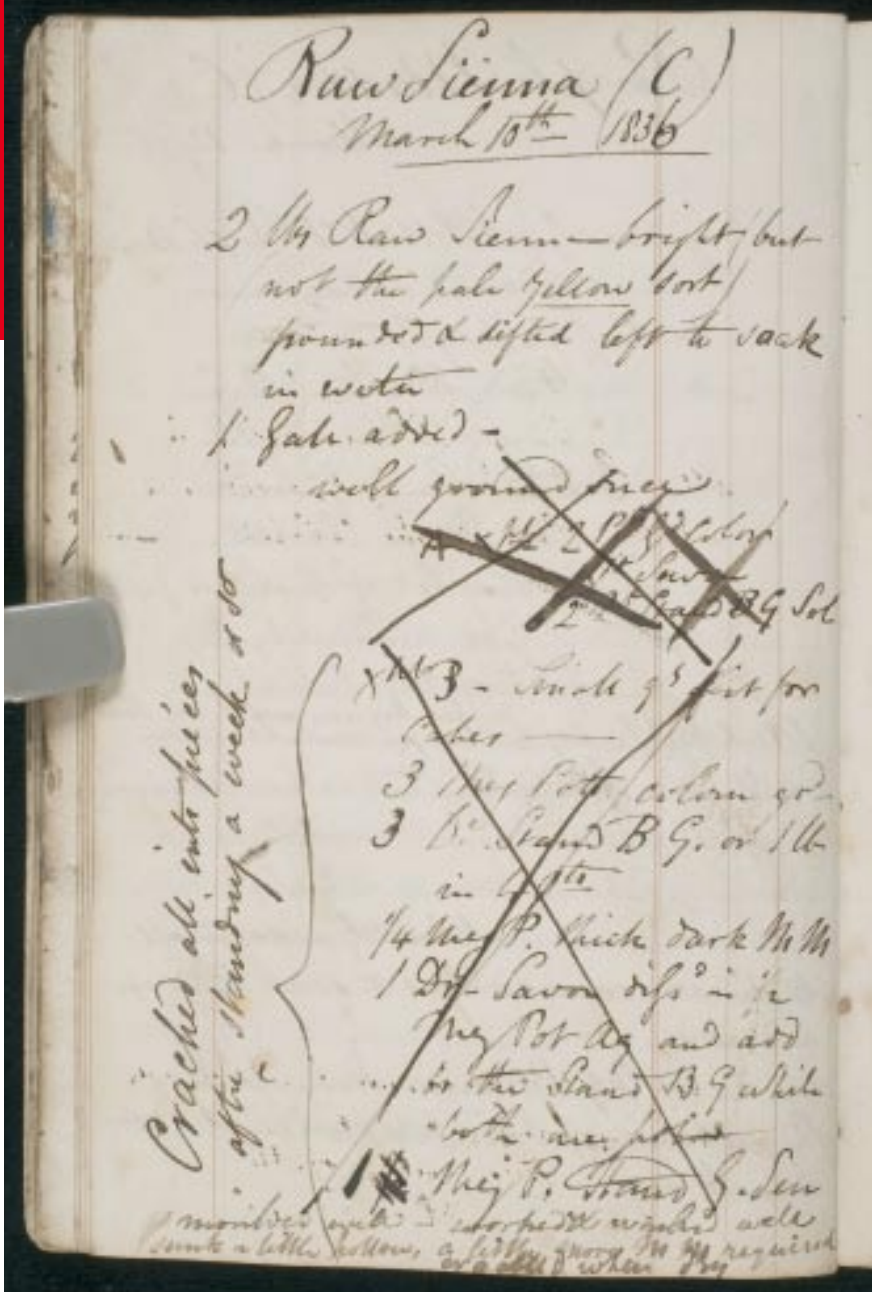 Raw Sienna (C)
March 10th 1836
2 lbs Raw Sienna — bright (but
not the pale Yellow sort)
pounded & sifted left to soak
in water
1 Gall: added -
well ground once
2 Color
2 Stand B G Sol
3 - Small gs fit for
Cakes —
3 Meg Potts colour gd
3 Do Stand B G. or 1 lb
in 6 pts
1/4 Meg P. thick dark M M
1 Dr - Savon diss'd in
Meg Pot Aq and add
to the Stand B. G while
both are hot
1 Meg P. Stand G. Sen
moulded well - worked & washed well
sunk a little hollow, a little more M M required
cracked when dry
Cracked all into pieces
after standing a week or so